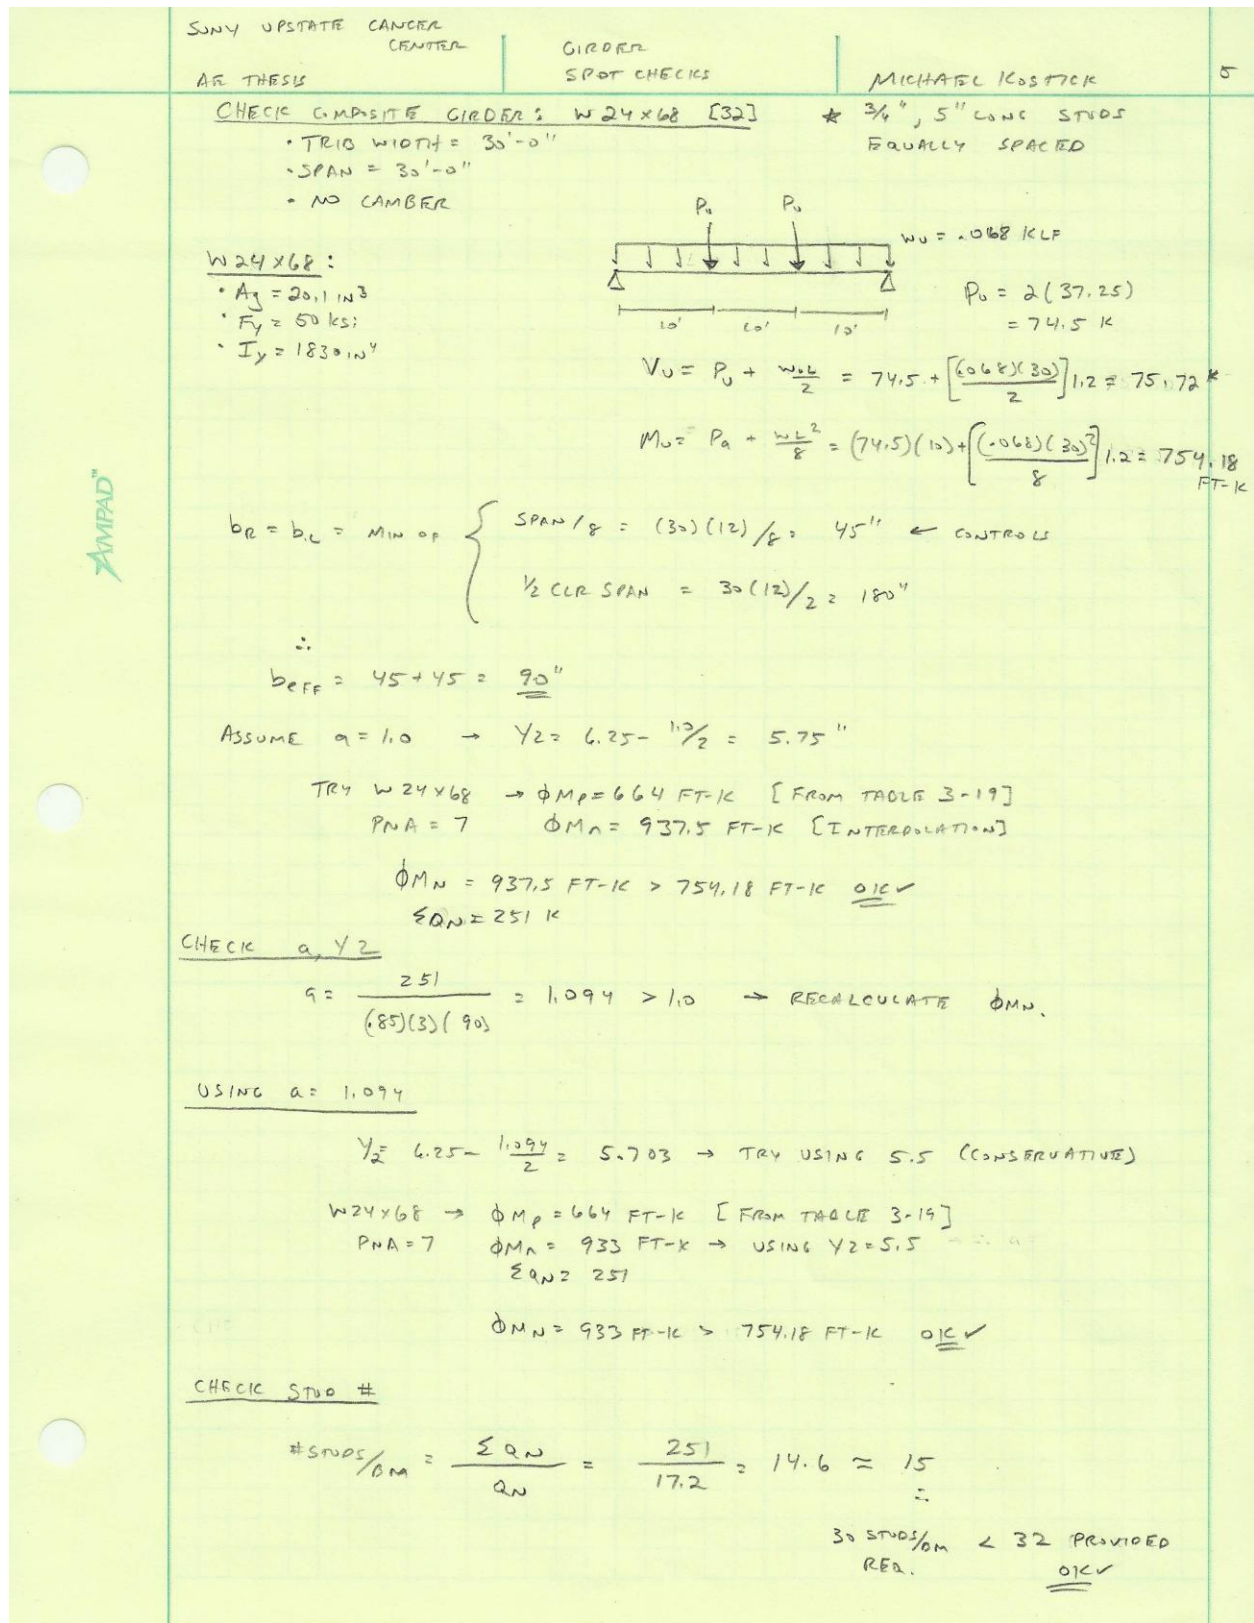 SUNY UPSTATE CANCER
CENTER
GIRDER
AE THESIS
SPOT CHECKS
MICHAEL KOSTICK
5
CHECK COMPOSITE GIRDER: W24×68 [32]
* 3/4", 5" LONG STUDS
EQUALLY SPACED
• TRIB WIDTH = 30'-0"
• SPAN = 30'-0"
• NO CAMBER
Pu Pu
wu = .068 KLF
W24×68:
• Ag = 20.1 IN³
• Fy = 50 ksi
• Iy = 1830 IN⁴
10' 10' 10'
Pu = 2(37.25)
= 74.5 K
Vu = Pu + wuL/2 = 74.5 + [(.068)(30)/2]1.2 = 75.72 K
Mu = Pa + wL²/8 = (74.5)(10) + [(.068)(30)²/8]1.2 = 754.18
FT-K
AMPAD™
bR = bL = MIN OF { SPAN/8 = (30)(12)/8 = 45" ← CONTROLS
1/2 CLR SPAN = 30(12)/2 = 180"
∴
beFF = 45 + 45 = 90"
ASSUME a = 1.0 → Y2 = 6.25 - 1.0/2 = 5.75"
TRY W24×68 → ϕMp = 664 FT-K [FROM TABLE 3-19]
PNA = 7 ϕMn = 937.5 FT-K [INTERPOLATION]
ϕMN = 937.5 FT-K > 754.18 FT-K OK✓
ΣQN = 251 K
CHECK a, Y2
a = 251/(.85)(3)(90) = 1.094 > 1.0 → RECALCULATE ϕMN.
USING a = 1.094
Y2 = 6.25 - 1.094/2 = 5.703 → TRY USING 5.5 (CONSERVATIVE)
W24×68 → ϕMp = 664 FT-K [FROM TABLE 3-19]
PNA = 7 ϕMn = 933 FT-K → USING Y2 = 5.5
ΣQN = 251
ϕMN = 933 FT-K > 754.18 FT-K OK✓
CHECK STUD #
#STUDS/BM = ΣQN/QN = 251/17.2 = 14.6 ≈ 15
∴
30 STUDS/BM < 32 PROVIDED
REQ. OK✓